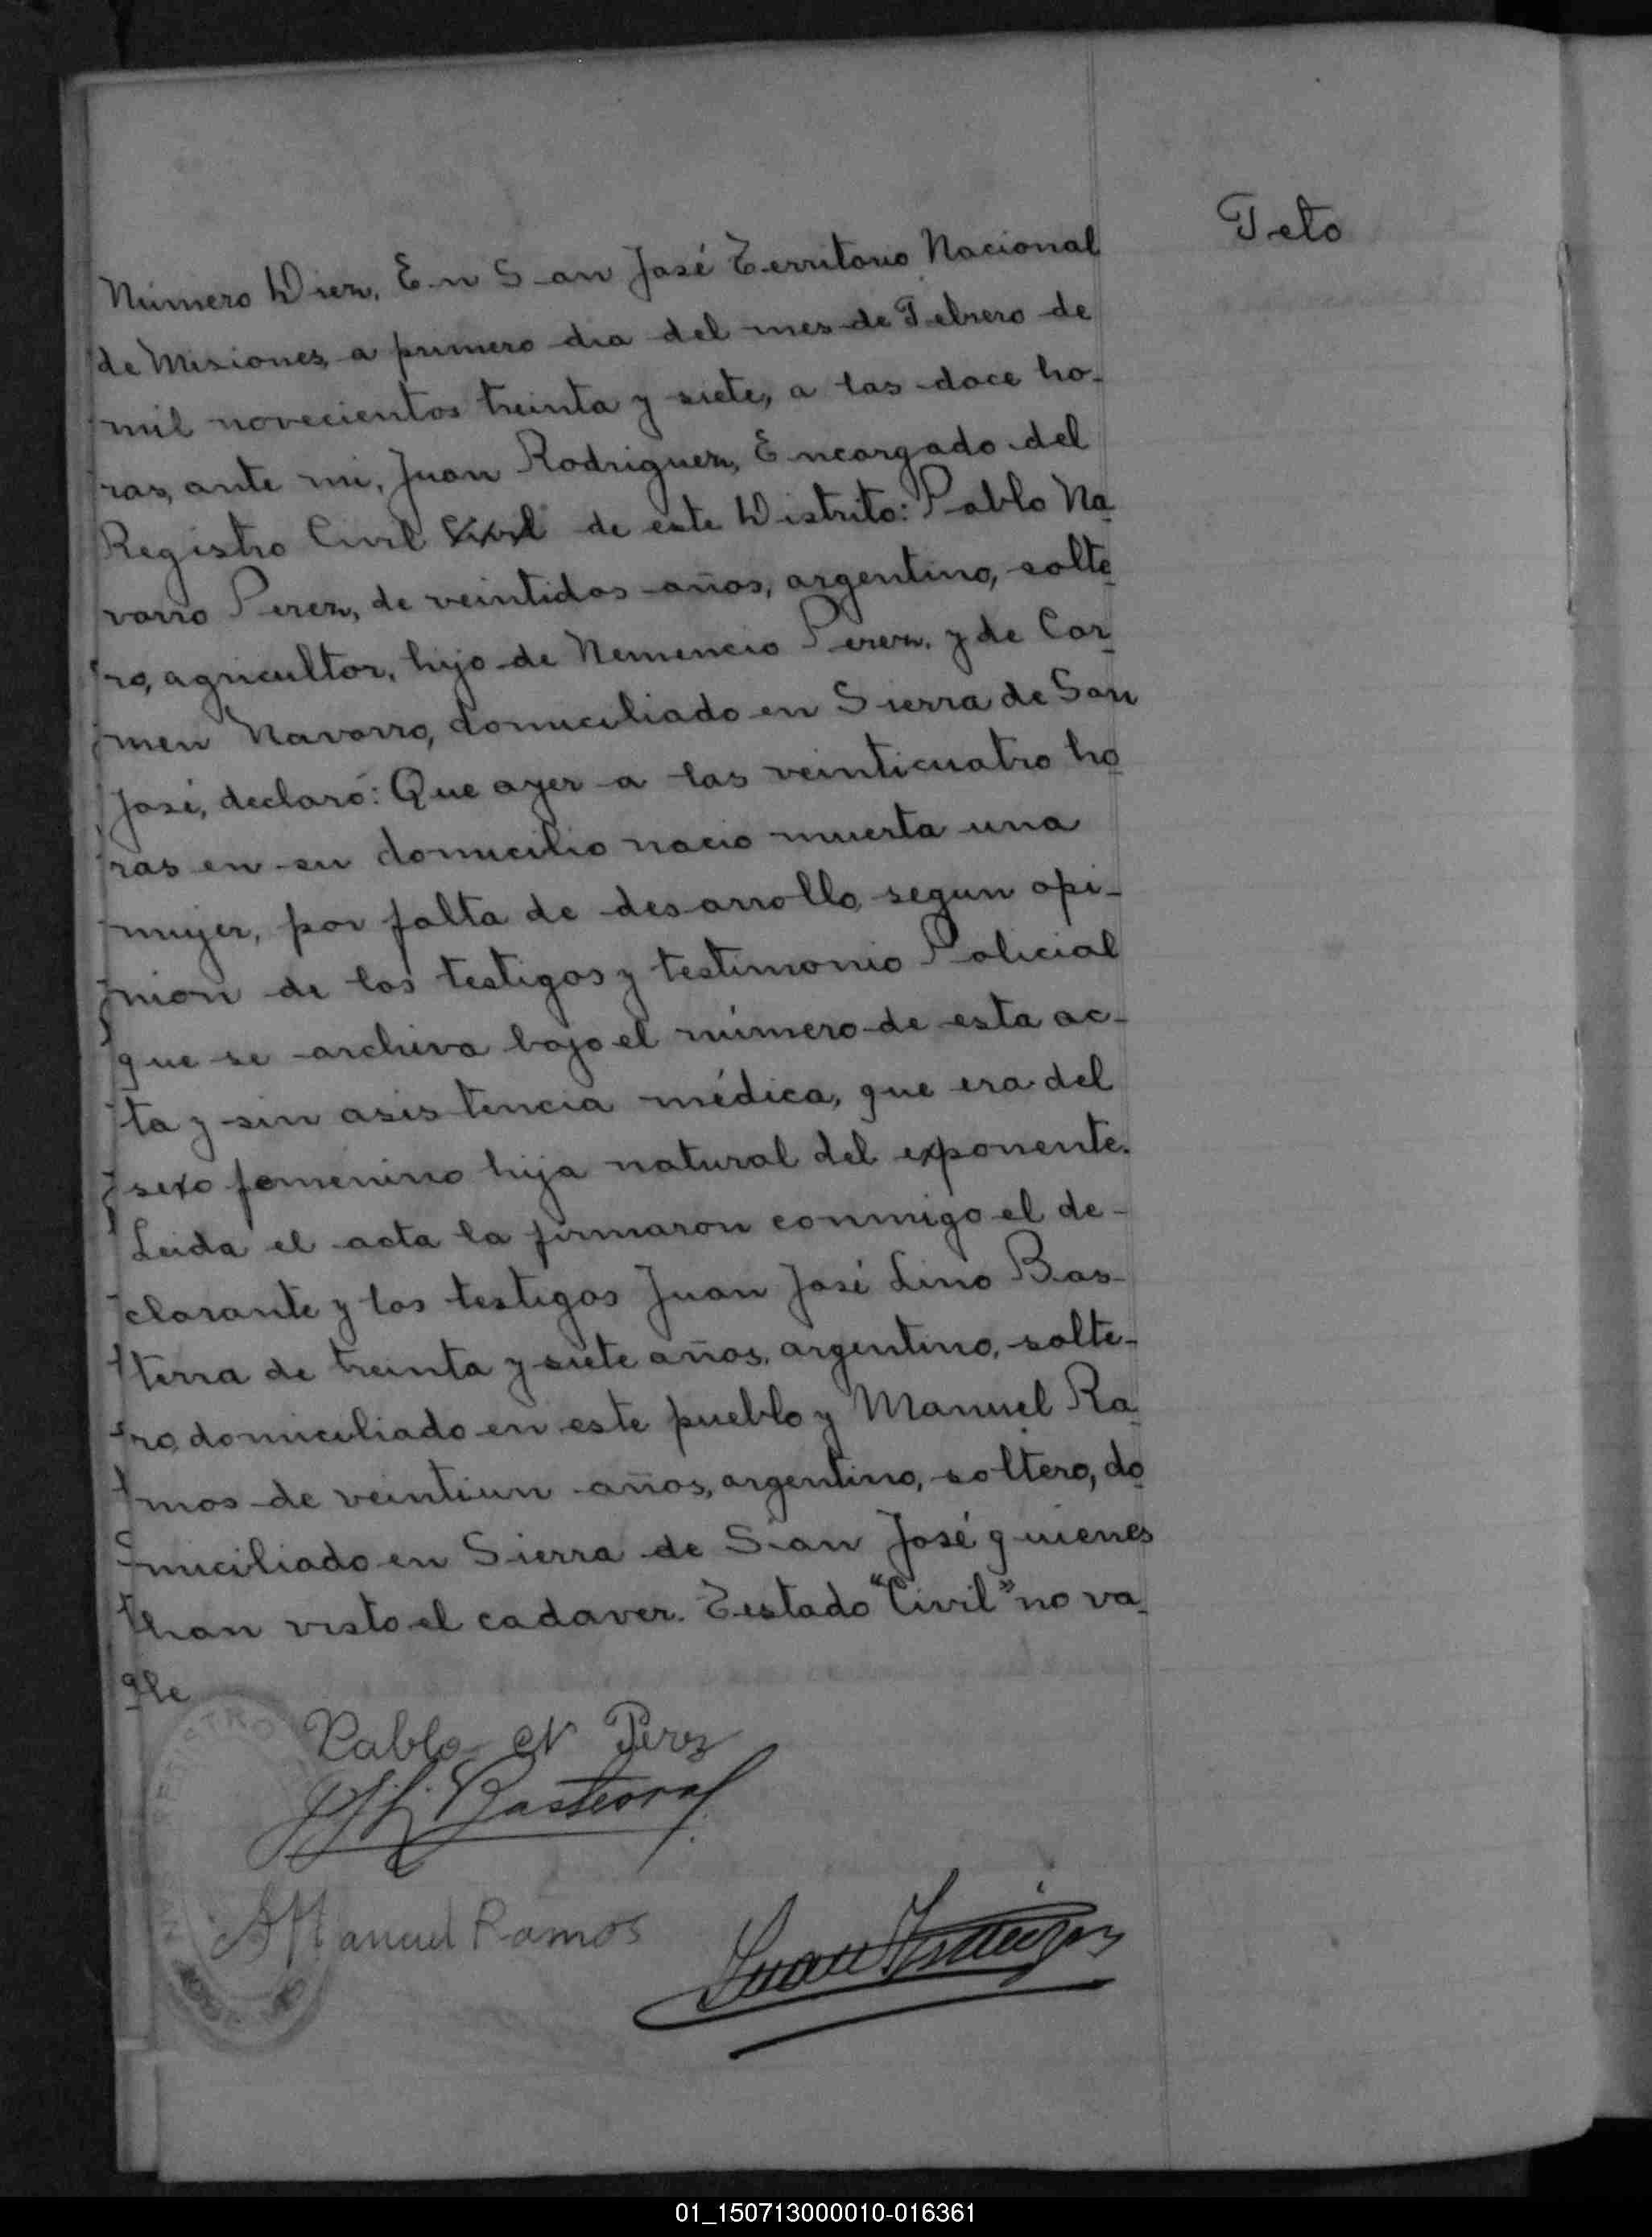 Feto
Número Diez, En San José Territorio Nacional
de Misiones, a primero dia del mes de Febrero de
mil novecientos treinta y siete, a las doce ho-
ras, ante mi, Juan Rodriguez, Encargado del
Registro Civil Civil de este Distrito: Pablo Na-
varro Perez, de veintidos años, argentino, solte-
ro, agricultor, hijo de Nemencio Perez, y de Car-
men Navarro, domiciliado en Sierra de San
José, declaró: Que ayer a las veinticuatro ho-
ras en su domicilio nacio muerta una
mujer, por falta de desarrollo, segun opi-
nion de los testigos y testimonio Policial
que se archiva bajo el número de esta ac-
ta y sin asistencia médica, que era del
sexo femenino hija natural del exponente.
Leida el acta la firmaron conmigo el de-
clarante y los testigos Juan José Lino Bas-
terra de treinta y siete años, argentino, solte-
ro, domiciliado en este pueblo y Manuel Ra-
mos de veintiun años, argentino, soltero, do-
miciliado en Sierra de San José quienes
han visto el cadaver. Testado "Civil" no va-
le
Pablo N Perez
Manuel Ramos
01_150713000010-016361